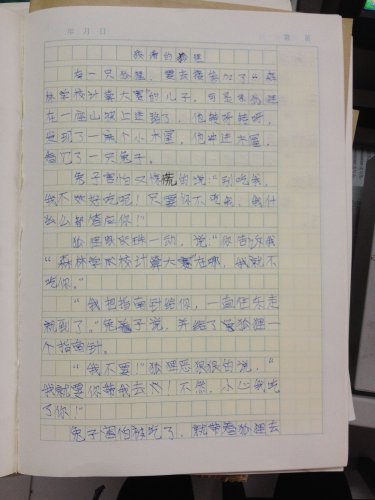 年 月 日
第 页
狡猾的狐狸
有一只狐狸，要去接参加了“森
林学校计算大赛”的儿子，可是狐狸
在一座山坡上迷路了，他转呀转呀，
发现了一个小木屋，他冲进木屋，
看见了一只兔子。
兔子害怕又惊慌的说：“别吃我，
我不太好吃呢！只要你不吃我，我什
么都答应你！”
狐狸眼珠一动，说“你告诉我
“森林学校计算大赛”在哪，我就不
吃你。”
“我把指南针给你，一直往东走
就到了。”兔子说，并给了狐狸一
个指南针。
“我不要！”狐狸恶狠狠的说，“
我就要你带我去！不然，小心我吃
了你！”
兔子害怕被吃了，就带着狐狸去